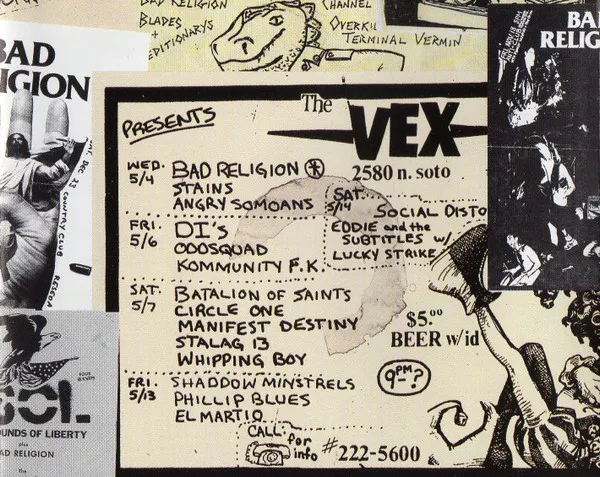 BAD RELIGION
BLADES
+
EDITIONARYS
CHANNEL
OVERKIL
TERMINAL VERMIN
BAD
IGION
SAT, DEC 23
COUNTRY CLUB
RESEDA
BA
RELIG
PRESENTS
The
VEX
2580 n. soto
WED. 5/4
BAD RELIGION *
STAINS
ANGRY SOMOANS
FRI. 5/6
DI's
ODDSQUAD
KOMMUNITY F.K.
SAT. 5/7
BATALION OF SAINTS
CIRCLE ONE
MANIFEST DESTINY
STALAG 13
WHIPPING BOY
FRI. 5/13
SHADDOW MINSTRELS
PHILLIP BLUES
EL MARTIO
SAT. 5/14
SOCIAL DISTO
EDDIE and the
SUBTITLES w/
LUCKY STRIKE
$5.00
BEER w/id
9PM-?
CALL
for
info
# 222-5600
FOUR
BANDS
SOL
OUNDS OF LIBERTY
plus
AD RELIGION
the